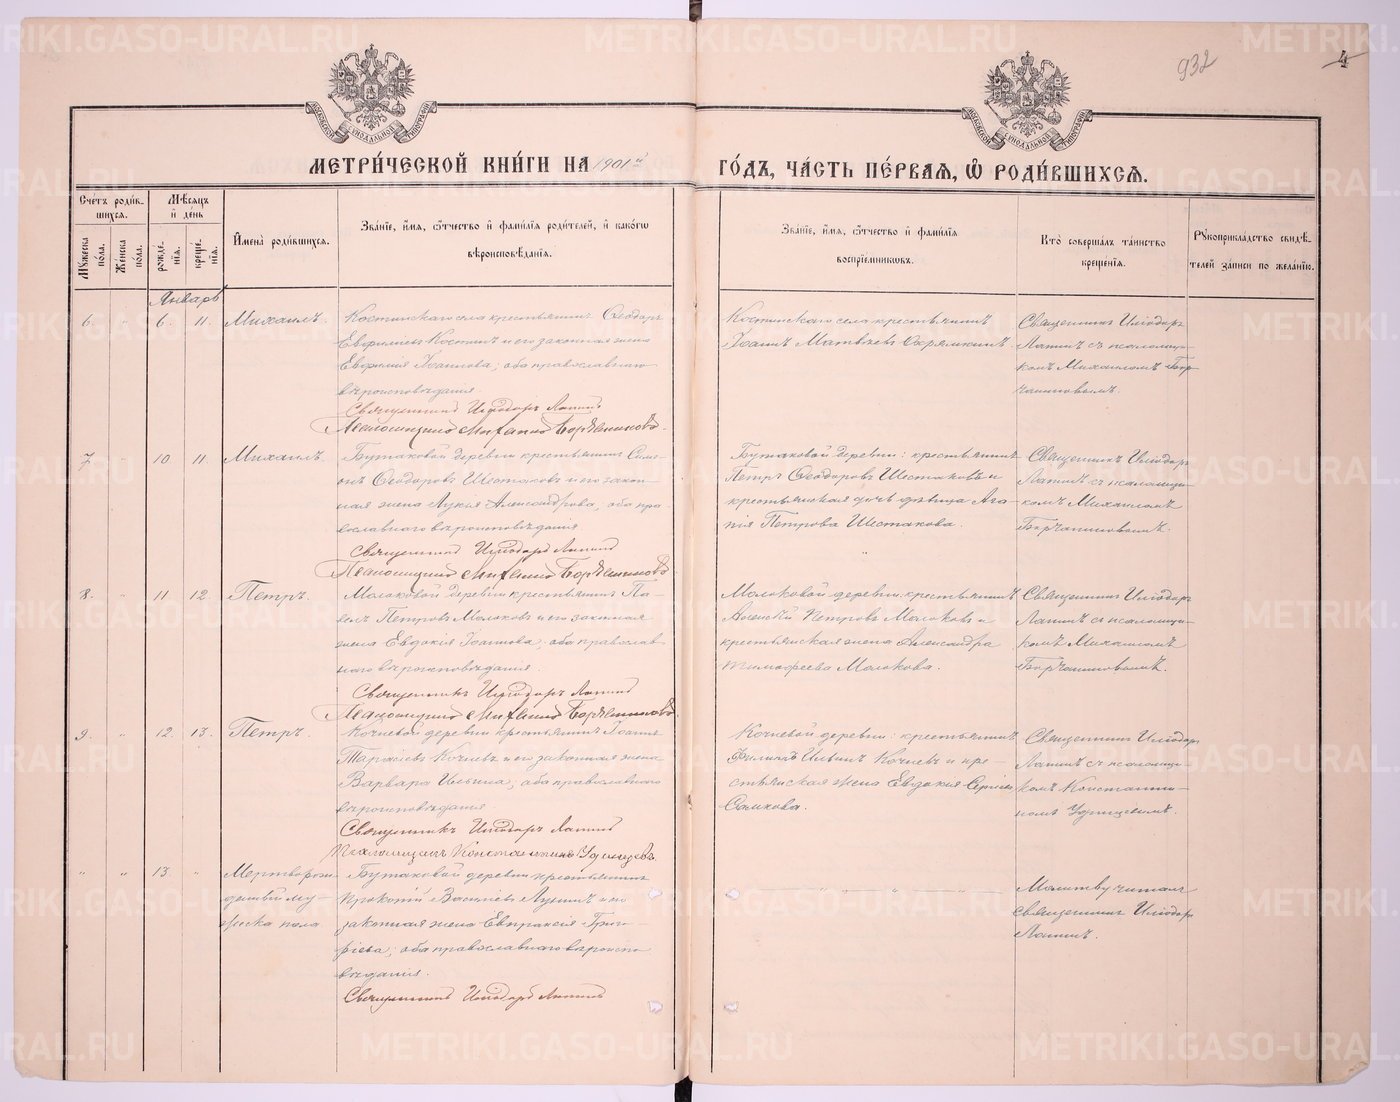 932
4
МЕТРИ́ЧЕСКОЙ КНИ́ГИ НА 1901й ГО́ДЪ, ЧА́СТЬ ПЕ́РВАЯ, Ѡ РОДИ́ВШИХСЯ.
Сче́тъ роди́в-
шихся.
Му́жеска по́ла.
Же́нска по́ла.
Мѣ́сяцъ
и҆ де́нь
рожде́-
нїя.
креще́-
нїя.
И҆мена̀ роди́вшихся.
Зва́нїе, и҆́мя, ѻ҆́тчество и҆ фами́лїя роди́телей, и҆ како́гѡ
вѣроисповѣ́данїя.
Зва́нїе, и҆́мя, ѻ҆́тчество и҆ фами́лїя
воспрїе́мниковъ.
Кто̀ соверша́лъ та́инство
креще́нїя.
Рꙋкоприкла́дство свидѣ́-
телей за́писи по жела́нїю.
Январь
6. " 6. 11. Михаилъ.
Костинскаго села крестьянинъ Ѳеодоръ
Евфимiевъ Костинъ и его законная жена
Іоаннова; оба православнаго
вѣроисповѣданiя.
Священникъ Иліодоръ Лапинъ
Псаломщикъ Михаилъ
Костинскаго села крестьянинъ
Іоаннъ Матвѣевъ
Священникъ Иліодоръ
Лапинъ съ псаломщи-
комъ Михаиломъ
7. " 10 11. Михаилъ.
Бутаковой деревни крестьянинъ Симе-
онъ Ѳеодоровъ Шестаковъ и его закон-
ная жена Лукія Александрова, оба пра-
вославнаго вѣроисповѣданія
Священникъ Иліодоръ Лапинъ
Псаломщикъ Михаилъ
Бутаковой деревни: крестьянинъ
Петръ Ѳеодоровъ Шестаковъ и
крестьянская дочь дѣвица Ага-
пія Петрова Шестакова.
Священникъ Иліодоръ
Лапинъ съ псаломщи-
комъ Михаиломъ
8. " 11 12. Петръ.
Молоковой деревни крестьянинъ Па-
велъ Петровъ Молоковъ и его законная
жена Евдокія Іоаннова; оба православ-
наго вѣроисповѣданія.
Священникъ Иліодоръ Лапинъ
Псаломщикъ Михаилъ
Молоковой деревни: крестьянинъ
Алексѣй Петровъ Молоковъ и
крестьянская жена Александра
Тимофеева Молокова.
Священникъ Иліодоръ
Лапинъ съ псаломщи-
комъ Михаиломъ
9. " 12. 13. Петръ.
Кочневой деревни крестьянинъ Іоаннъ
Тарасіевъ Кочневъ и его законная жена
Варвара Ильина; оба православнаго
вѣроисповѣданія.
Священникъ Иліодоръ Лапинъ
Псаломщикъ Константинъ Удинцевъ
Кочневой деревни: крестьянинъ
Филиппъ Ильинъ Кочневъ и кре-
стьянская жена Евдокія Сергіева
Священникъ Иліодоръ
Лапинъ съ псаломщи-
комъ Константи-
номъ Удинцевымъ.
" " 13. " Мертворож-
денный му-
жеска пола
Бутаковой деревни крестьянинъ
Прокопій Васильевъ и его
законная жена Евпраксія Григо-
ріева; оба православнаго вѣроиспо-
вѣданія.
Священникъ Иліодоръ Лапинъ
" " " "
Молитву читалъ
священникъ Иліодоръ
Лапинъ.
METRIKI.GASO-URAL.RU